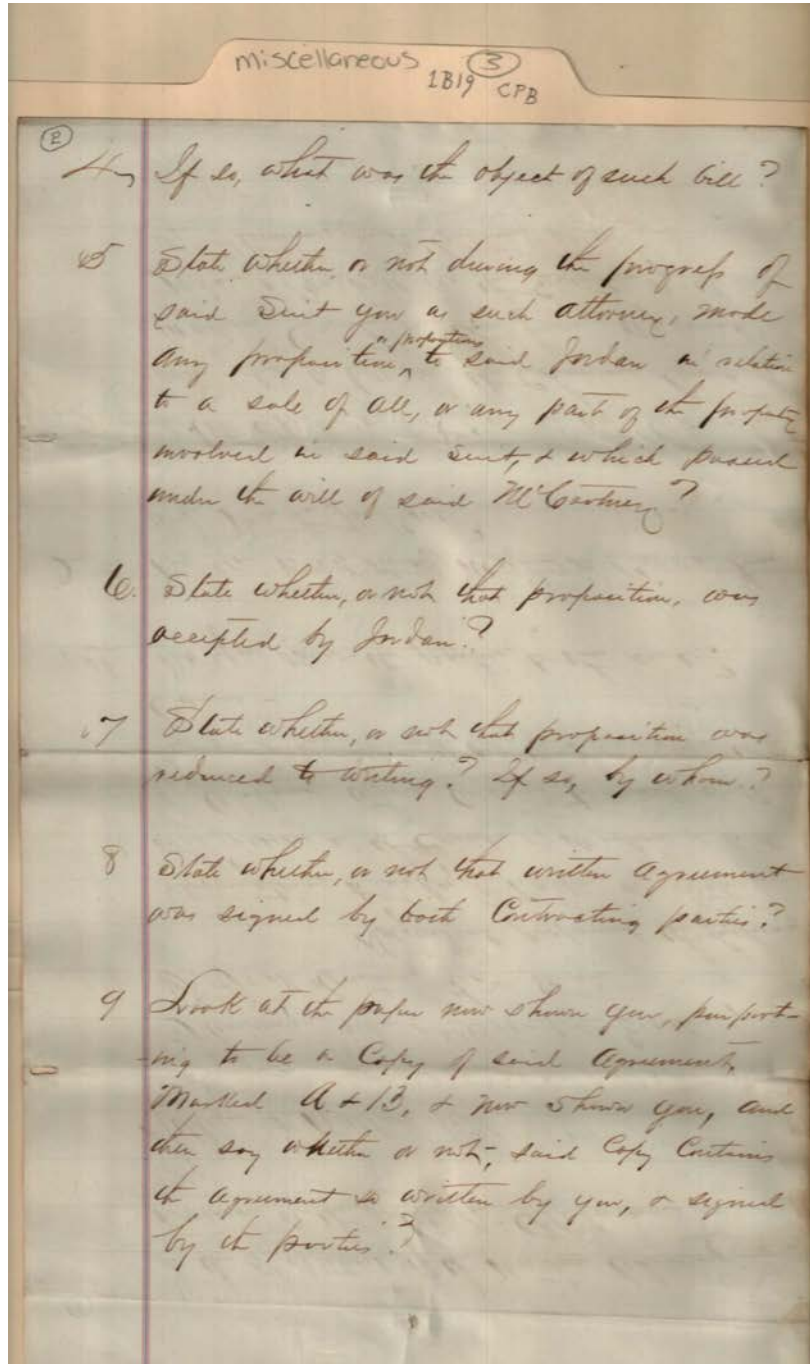 miscellaneous 3
1B19 CPB
2
4, If so, what was the object of such bill?
5 State whether, or not during the progress of
said Suit you as such attorney, made
or propositions
any proposition, ^ to said Jordan in relation
to a sale of all, or any part of the property
involved in said suit, & which passed
under the will of said McCartney?
6. State whether, or not that proposition, was
accepted by Jordan?
7 State whether, or not that proposition was
reduced to writing? If so, by whom?
8 State whether, or not that written Agreement
was signed by both Contracting parties?
9 Look at the paper now shown you, purport-
-ing to be a Copy of said Agreement,
Marked A & B, & now shown you, and
then say whether or not, said Copy Contains
the Agreement so written by you, & signed
by the parties?